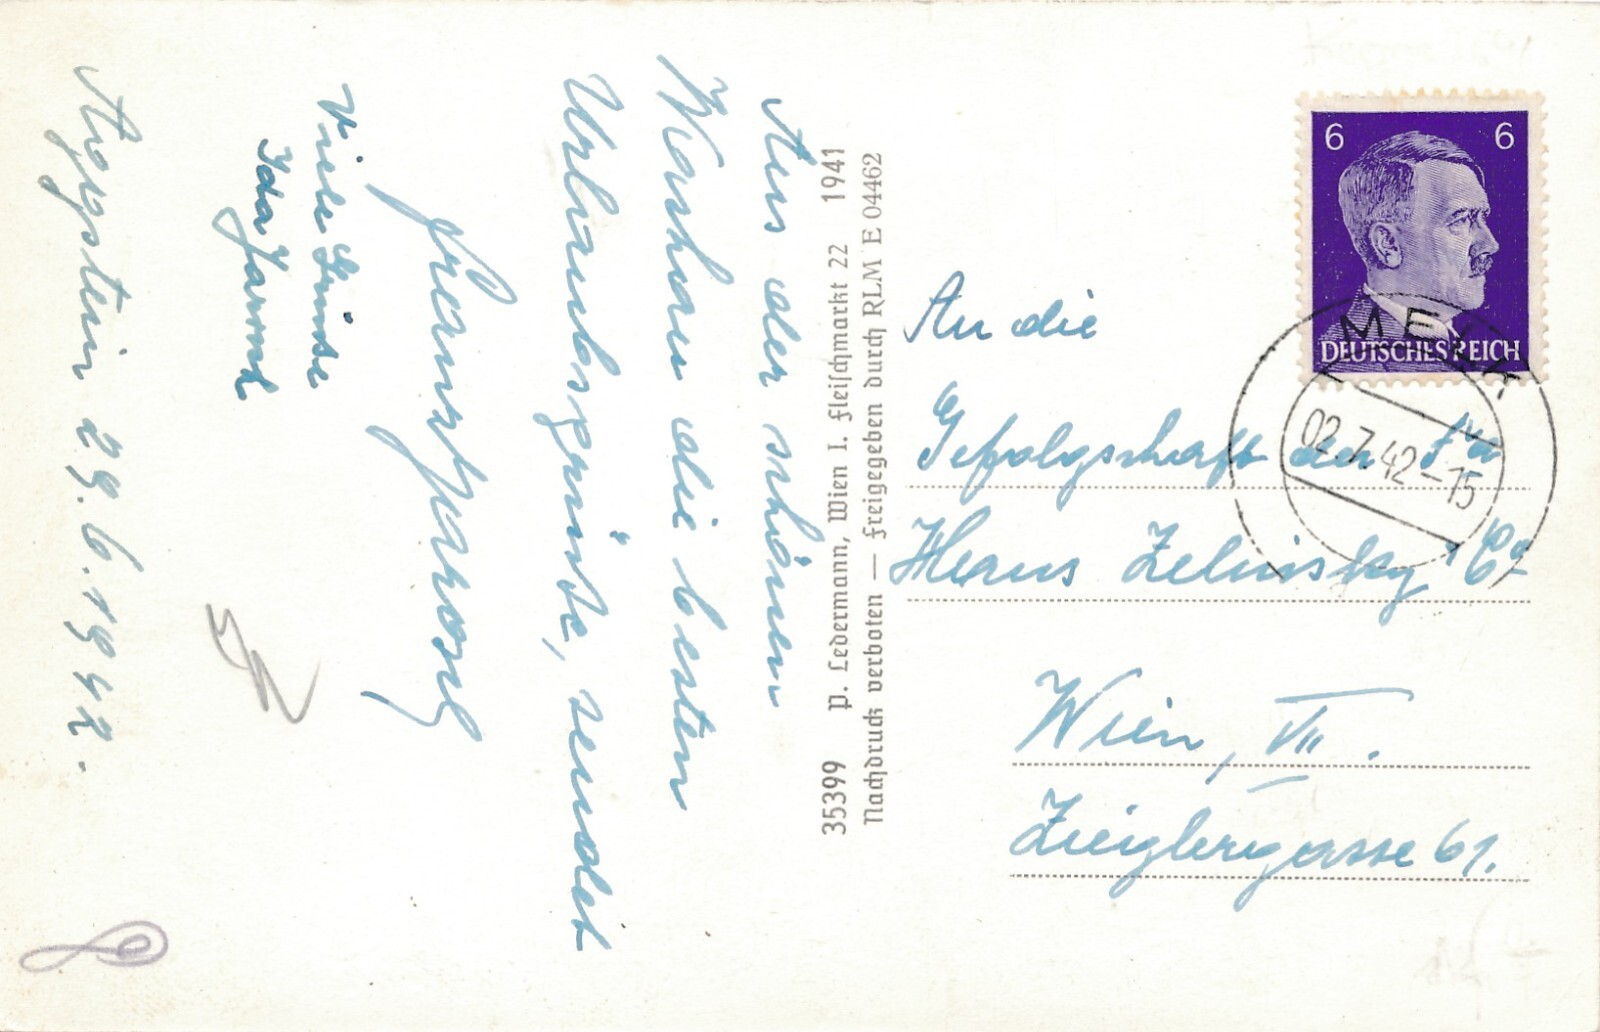 Aus der schönen
Wachau die besten
Urlaubsgrüße, sendet
Viele Grüsse
Ida
Aggstein 29.6.1942.
35399 P. Ledermann, Wien I. Fleischmarkt 22 1941
Nachdruck verboten — Freigegeben durch RLM E 04462
6 6
DEUTSCHES REICH
MELK
02.7.42-15
An die
Gefolgschaft der Fa
Hans Zelinsky Co
Wien, VII.
Zieglergasse 61.